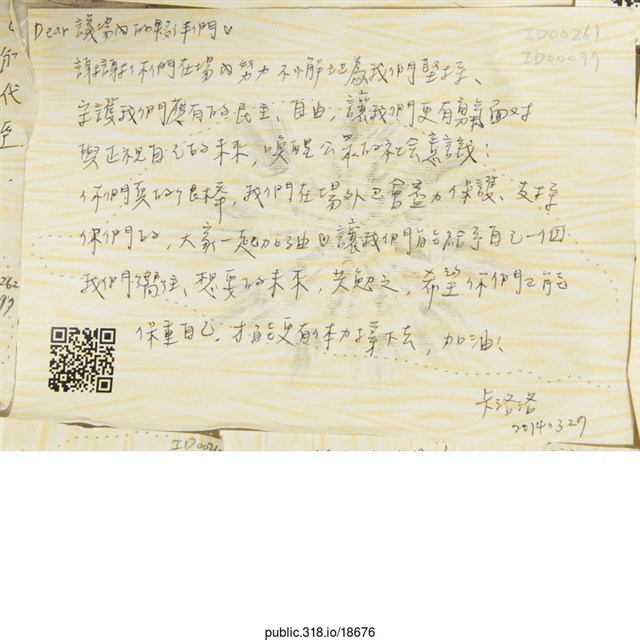 Dear 議場內的夥伴們
ID00261
ID00097
謝謝你們在場內努力不懈地為我們堅持、
守護我們應有的民主、自由,讓我們更有勇氣面對
與正視自己的未來,喚醒公眾的社會意識!
你們真的很棒,我們在場外也會盡力保護、支持
你們的,大家一起加油 讓我們能給予自己一個
我們嚮往、想要的未來,共勉之,希望你們也能
保重自己,才能更有体力撐下去,加油!
卡洛洛
20140327
代
262
ID002
public.318.io/18676